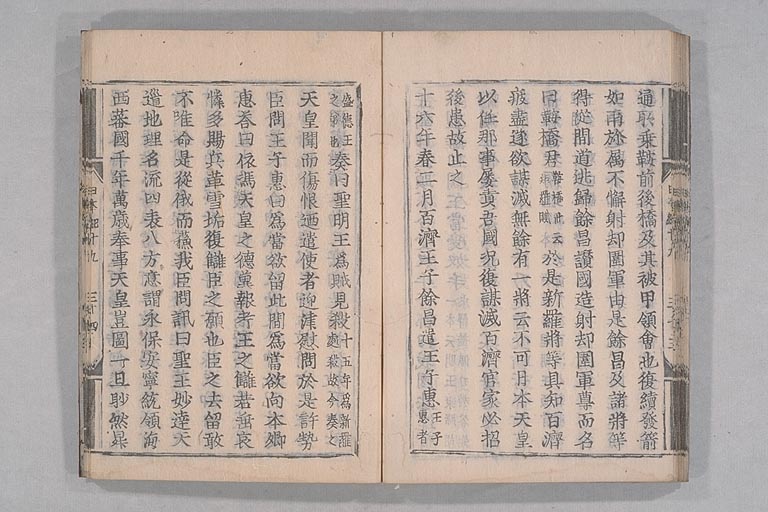 通所乗鞍前後橋及其被甲領會也復續發箭
如雨弥厲不懈射却圍軍由是餘昌及諸將等
得從間道逃歸餘昌讃國造射却圍軍尊而名
曰鞍橋君鞍橋此云矩羅膩於是新羅將等具知百濟
疲盡遂欲謀滅無餘有一將云不可日本天皇
以任那事屡責吾國况復謀滅百濟官家必招
後患故止之
十六年春二月百濟王子餘昌遣王子惠王子惠者
威德王之弟也奏曰聖明王爲賊見殺十五年爲新羅所殺故今奏之
天皇聞而傷恨廼遣使者迎津慰問於是許勢
臣問王子惠曰爲當欲留此間爲當欲向本鄉
惠荅曰依憑天皇之德冀報考王之讎若垂哀
憐多賜兵革雪垢復讎臣之願也臣之去留敢
不唯命是從俄而蘇我臣問訊曰聖王妙達天
道地理名流四表八方意謂永保安寧統領海
西蕃國千年萬歳奉事天皇豈圖一旦眇然昇